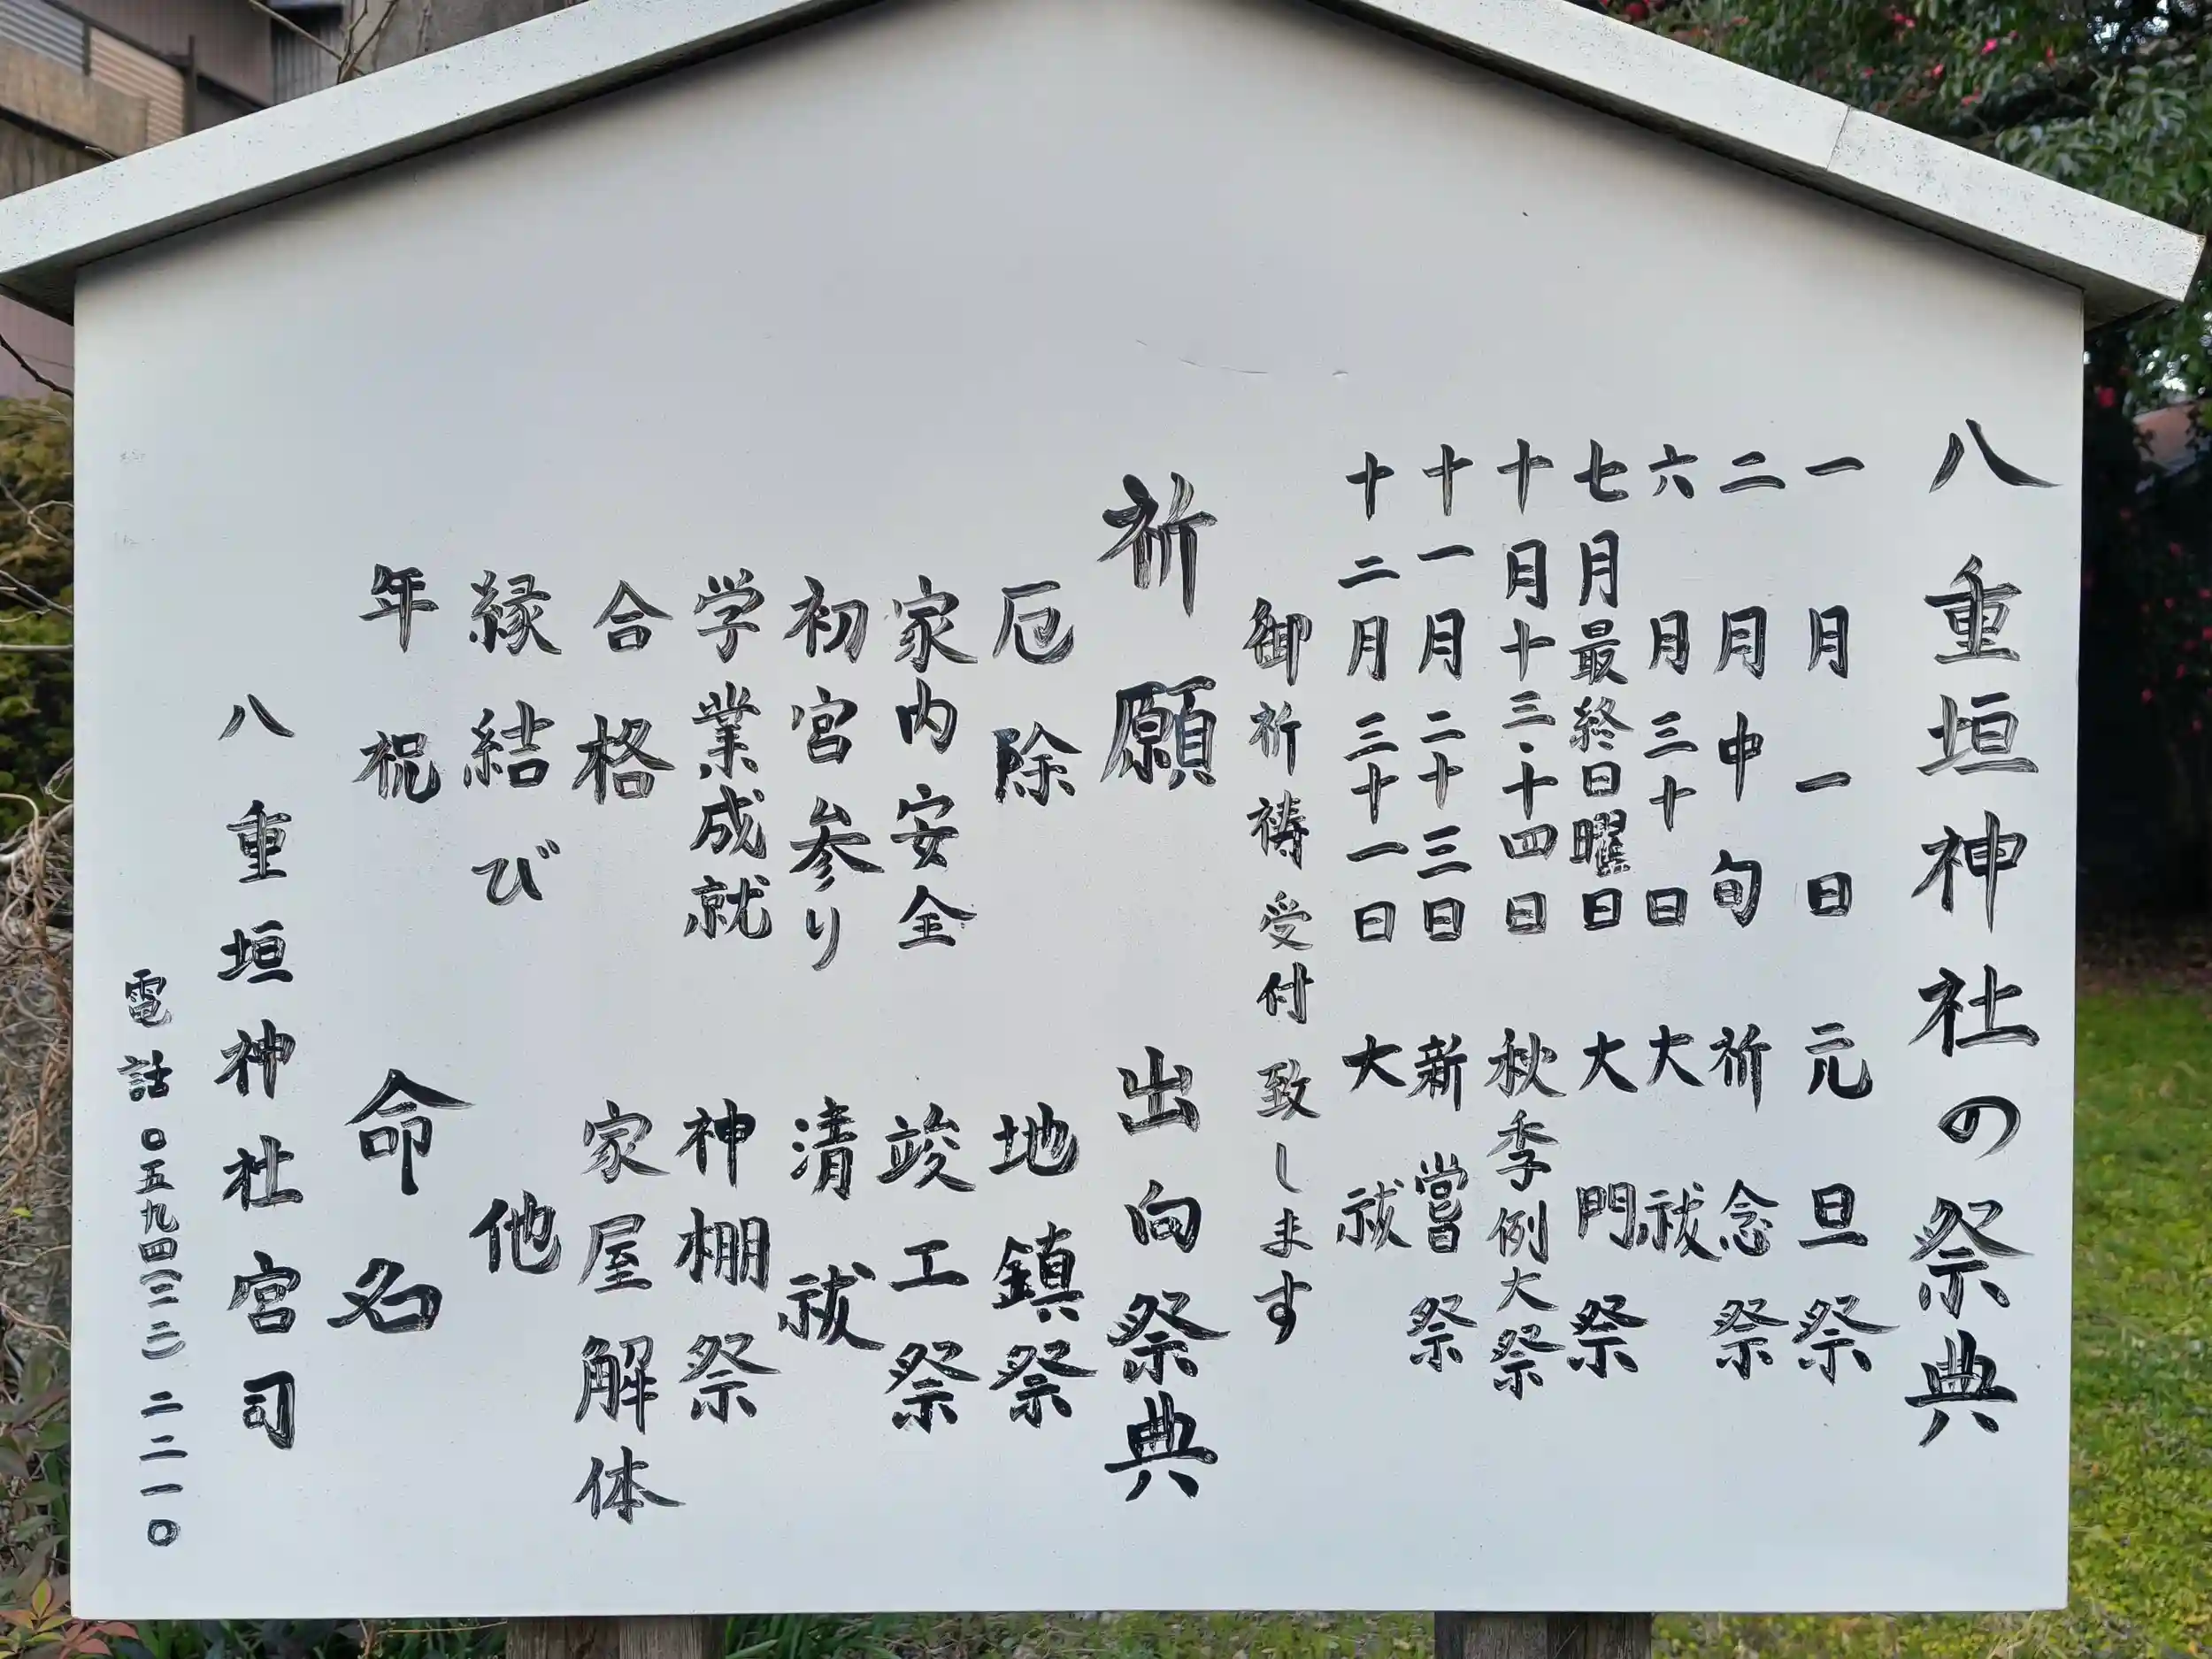 八重垣神社の祭典
一月一日 元旦祭
二月中旬 祈念祭
六月三十日 大祓
七月最終日曜日 大門祭
十月十三・十四日 秋季例大祭
十一月二十三日 新嘗祭
十二月三十一日 大祓
御祈祷受付致します
祈願 出向祭典
厄除 地鎮祭
家内安全 竣工祭
初宮参り 清祓
学業成就 神棚祭
合格 家屋解体
縁結び 他
年祝 命名
八重垣神社宮司
電話〇五九四(二二)二二一〇